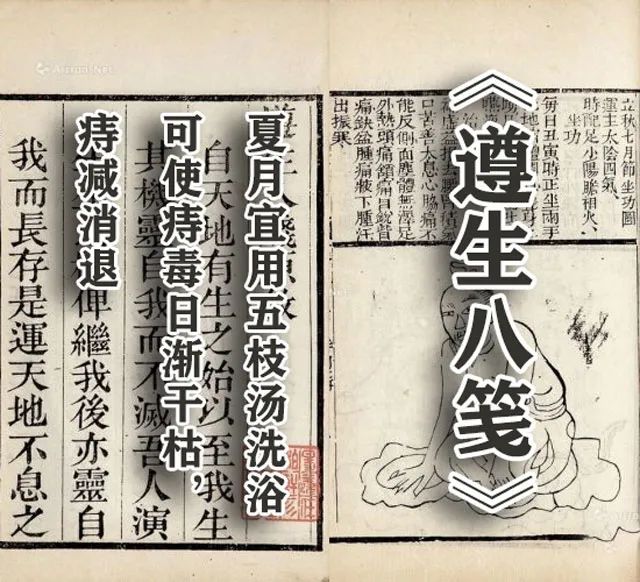 《遵生八笺》
夏月宜用五枝汤洗浴
可使痔毒日渐干枯，
痔减消退
立秋七月節坐功圖
運主太陰四氣
時配足少陽膽相火
坐功
每日丑寅時正坐兩手
口苦善太息心脇痛不
能反側面塵體無澤足
外熱頭痛頷痛目銳眥
痛缺盆腫痛腋下腫汗
出振寒
自天地有生之始以至我生
其機靈自我而不滅吾人演
俾繼我後亦靈自
我而長存是運天地不息之
Artron.Net